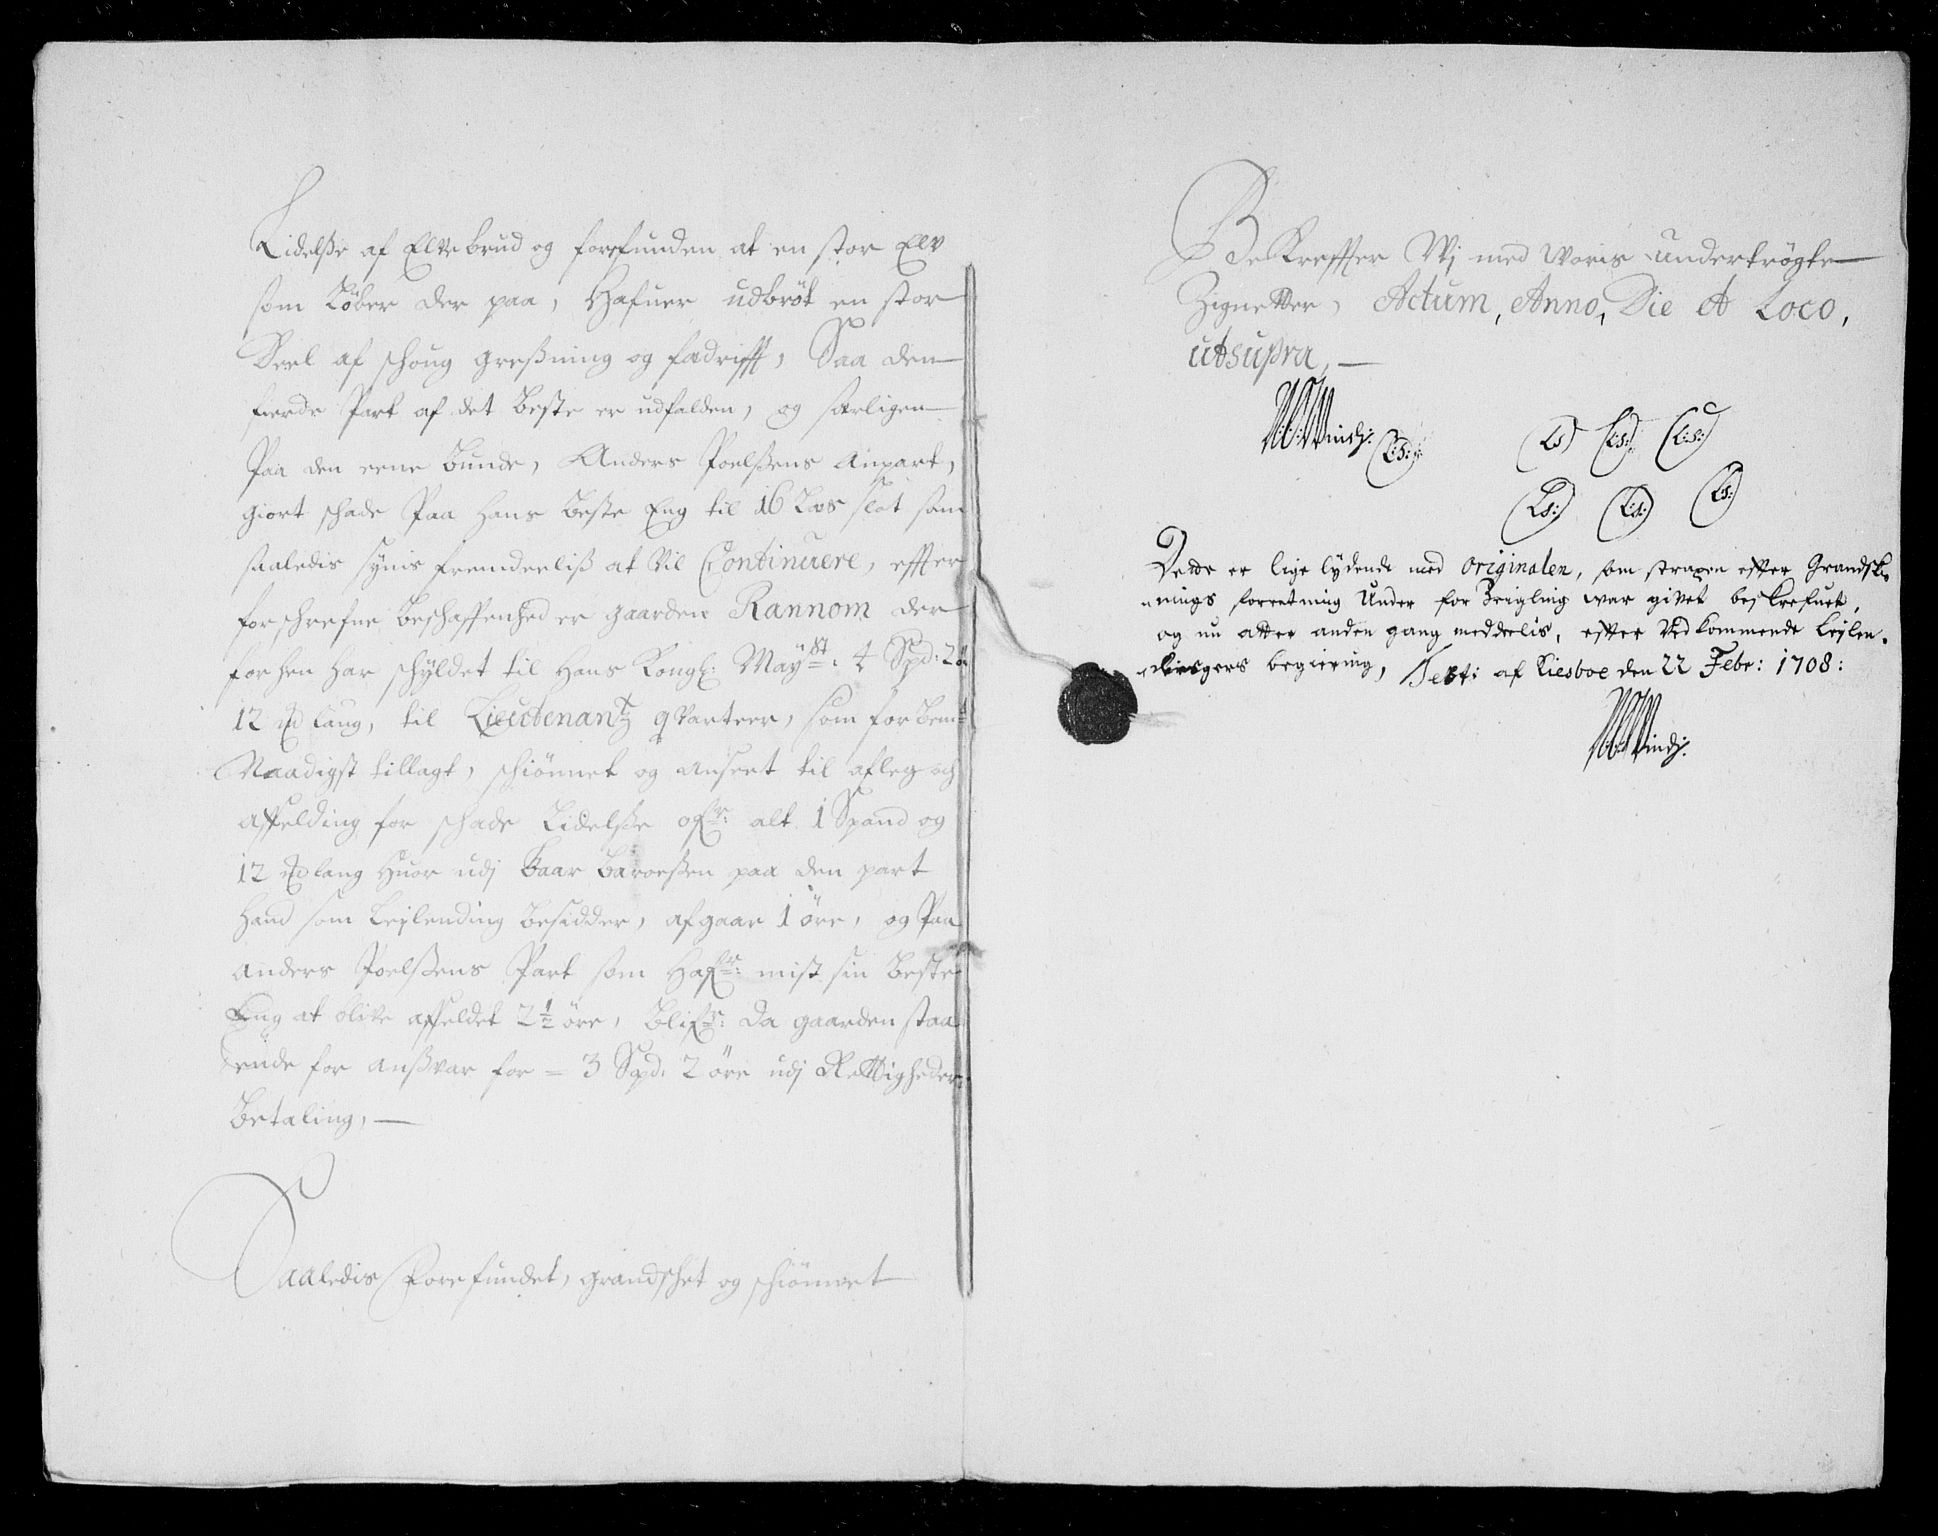 Lidelße af Elvebrud og forefunden at en stor Elv
som Løber der paa, Hafuer udbrøt en stor
Deel af schoug Greßning og fædrifft, Saa den
fierde Part af det Beste er udfalden, og særligen
Paa den eene Bunde, Anders Poelßens anpart,
giort schade Paa hans beste Eng til 16 Læs slat som
saaledis synis fremdeeliß at vil Continuere, effter
forschrefne Beschaffenhed er gaarden Rannom der
forhen har schyldet til Hans Kongl: Mayst: 4 Spd: 2 ø
12 Mk laug, til Lieutenantz qvarteer, som forbemt
Naadigst tillagt, schiønnet og anseet til afleg og
affelding for schade Lidelße ofr: alt 1 Spand og
12 Mk lang huor udj Baar Baroeßen paa den part
hand som Leylending besidder, afgaar 1 øre, og Paa
Anders Poelßens Part som Hafr: mist sin beste
Eng at blive affeldet 2½ øre, blifr: da gaarden staa
ende for Anßvar for = 3 Spd: 2 øre udj Rettigheders
Betaling, —
Saaledis Forefundet, grandschet og schiønnet
Bekreffter Wj med Woris undertrøgte
Zignetter, Actum, Anno, Die et Loco,
utsupra, —
Winds: (L:S:)
(LS) (L:S:) (L:S:)
(LS:) (L:S:) (LS:)
Dette er lige lydende med originalen, som strapen effter Grandsk¬
nings forretning Under for Seigling war givet beskrefuet,
og nu atter anden gang meddeelis, effter Vedkommende Leylen¬
dingers begiering, Test: af Kiesboe den 22 Febr: 1708:
Winds: